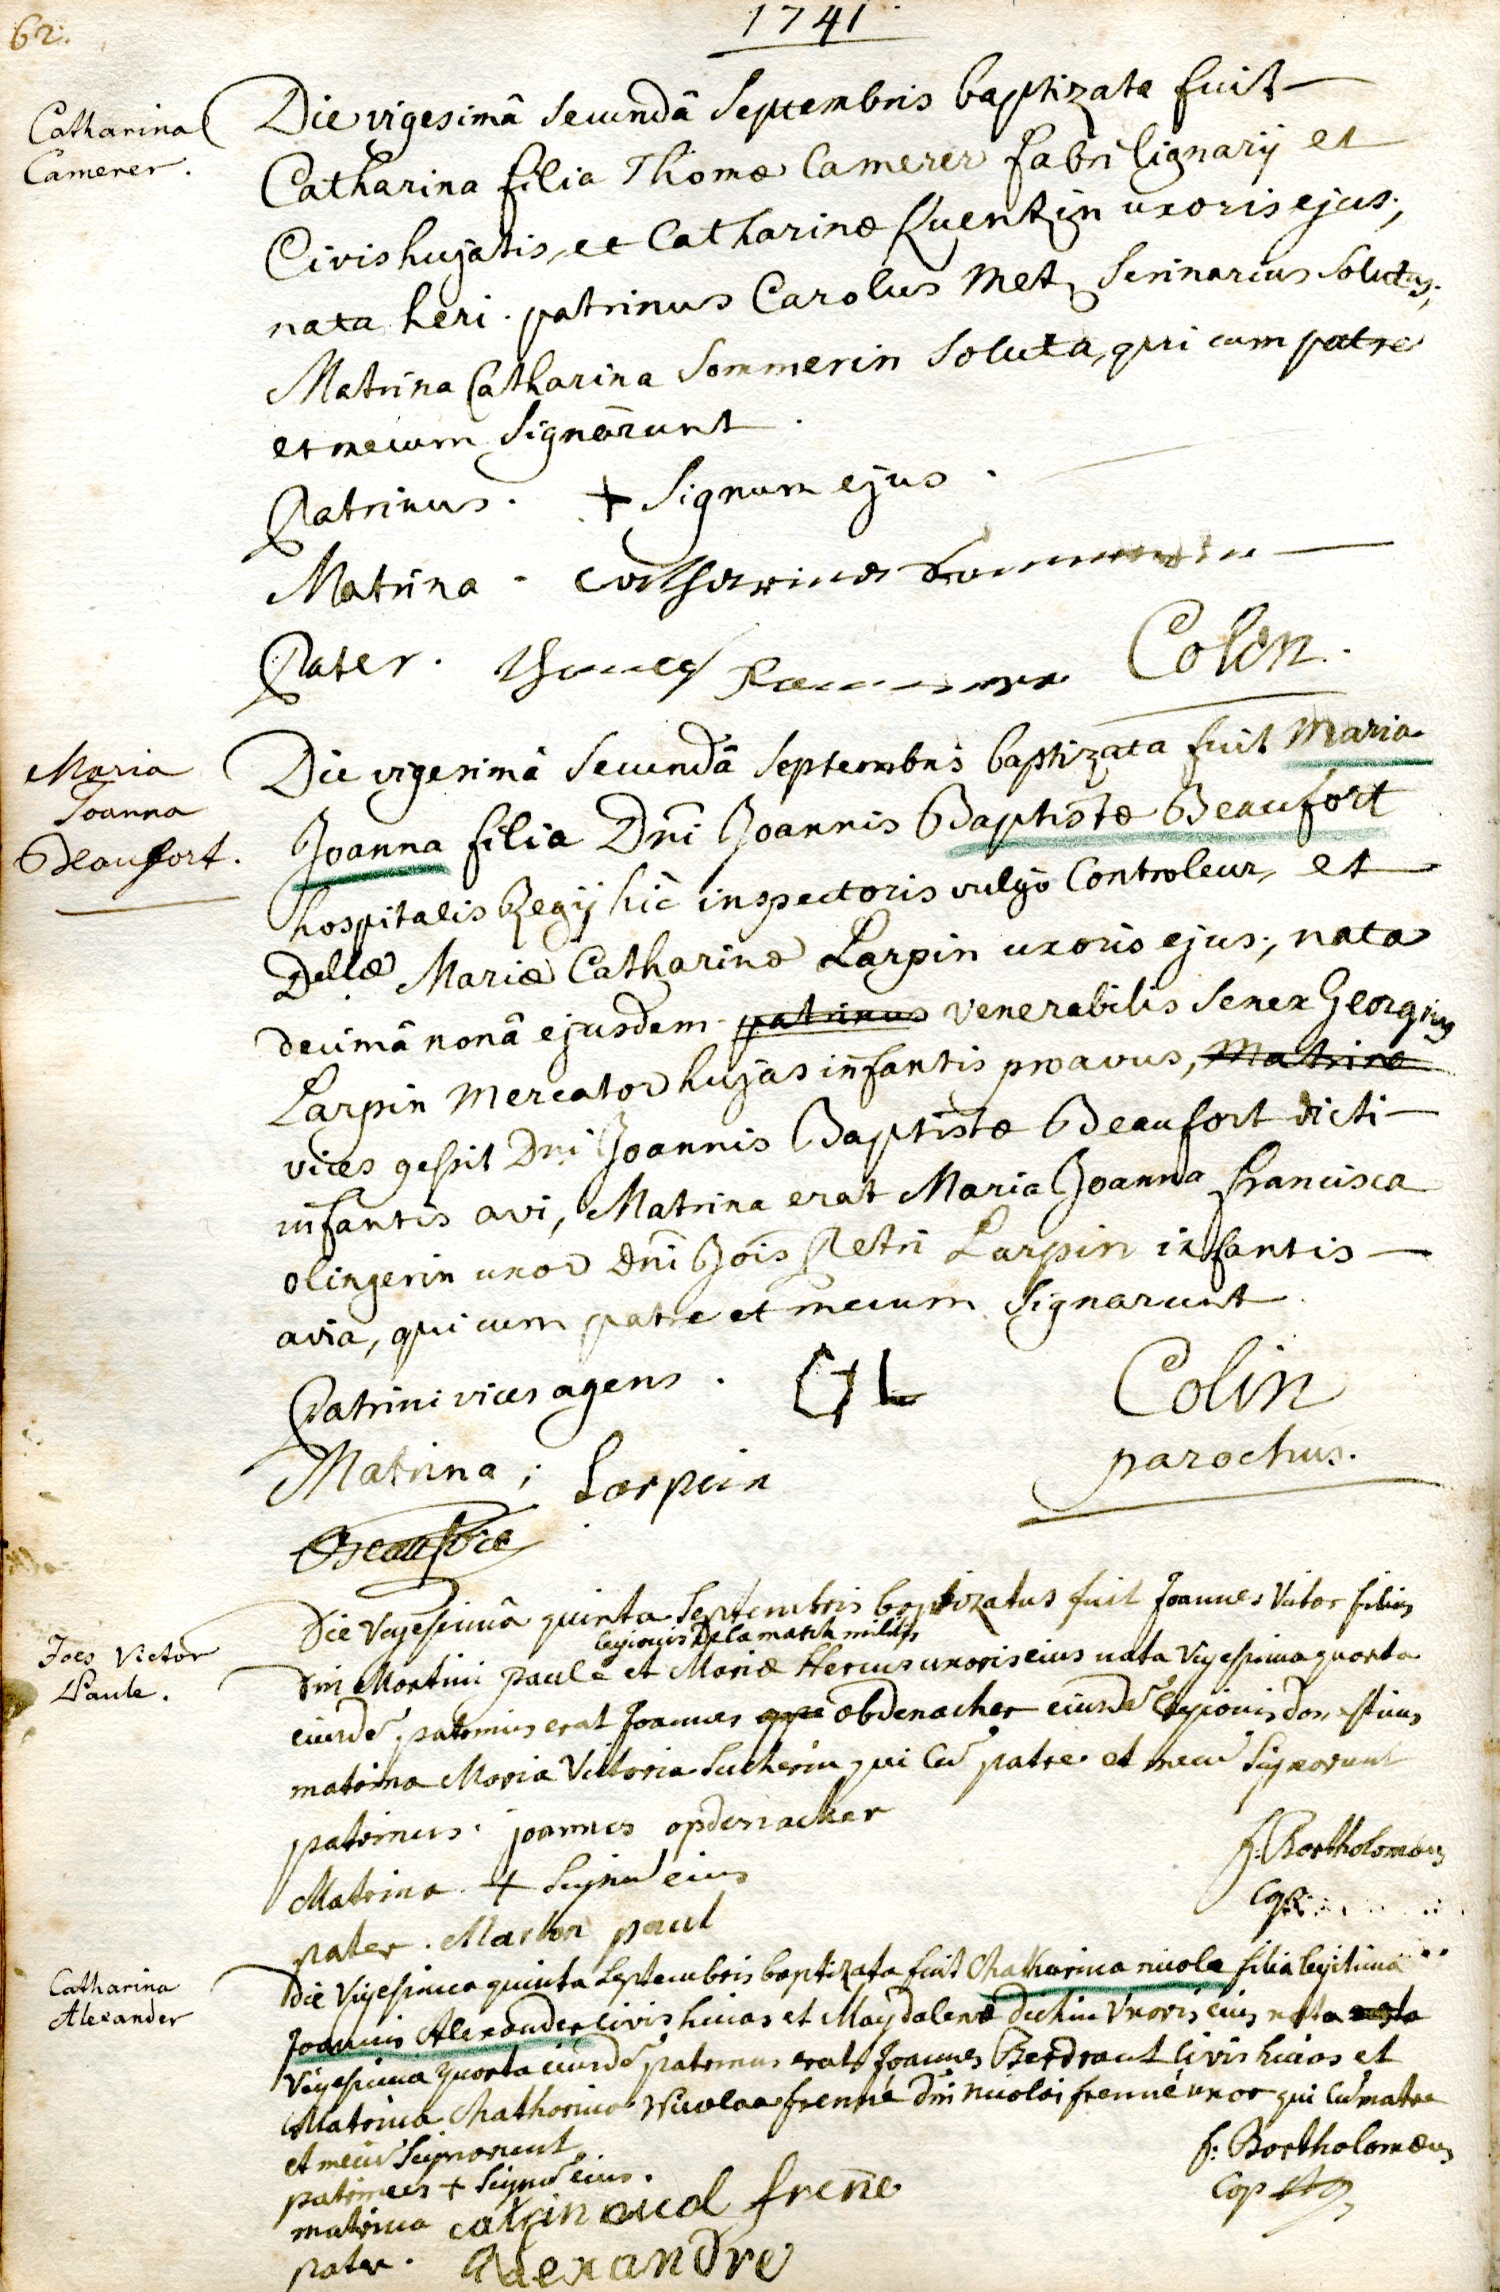 62.
1741
Catharina
Camerer.
Die vigesimâ secundâ Septembris baptizata fuit
Catharina filia Thomæ Camerer fabri lignarij et
Civis hujatis, et Catharinæ Quentzin uxoris ejus;
nata heri. patrinus Carolus Metz scrinarius solutus;
Matrina Catharina Sommerin soluta, qui cum patre
et mecum signarunt.
Patrinus. + signum ejus.
Matrina. Catharina
Pater. Colin.
Maria
Joanna
Beaufort.
Die vigesimâ secundâ Septembris baptizata fuit Maria
Joanna filia Dñi Joannis Baptistæ Beaufort
hospitalis Regij hic inspectoris vulgò Controleur, et
Dellæ Mariæ Catharinæ Larpin uxoris ejus; nata
decimâ nonâ ejusdem. patrinus venerabilis senex Georgius
Larpin mercator hujas infantis proavus, Matrina
vices gessit Dñi Joannis Baptistæ Beaufort dicti
infantis avi, Matrina erat Maria Joanna francisca
olingerin uxor Dñi Jois Petri Larpin infantis
avia, qui cum patre et mecum signarunt.
Patrini vices agens. G+L Colin
parochus.
Matrina; Larpin
Beaufort
Joes Victor
Paule.
Die Vigesimâ quinta Septembris baptizatus fuit Joannes Victor filius
legionis Delamarck militis
Dni Martini Paule et Mariæ uxoris eius nata Vigesima quarta
eiusdē, patrinus erat Joannes obdenacher eiusdē legionis
matrina Maria Victoria Sucherin qui Cū patre et mecū signarunt
patrinus. joannes opdenacker
Matrina. + Signū eius f: Bartholomæus
pater. Marten paul
Catharina
Alexander
Die Vigesima quinta Septembris baptizata fuit Chatharina nicola filia legitima
Joannis Alexander civis huias et Magdalenæ Uxoris eius nata
Vigesima quarta eiusdē patrinus erat Joannes civis huias et
Matrina Chatharina Nicolaa frenné Dñi nicolai frenné uxor qui Cū matre
et mecū signarunt f: Bartholomæus
patrinus + Signū eius. Cap
matrina frene
pater. Alexandre